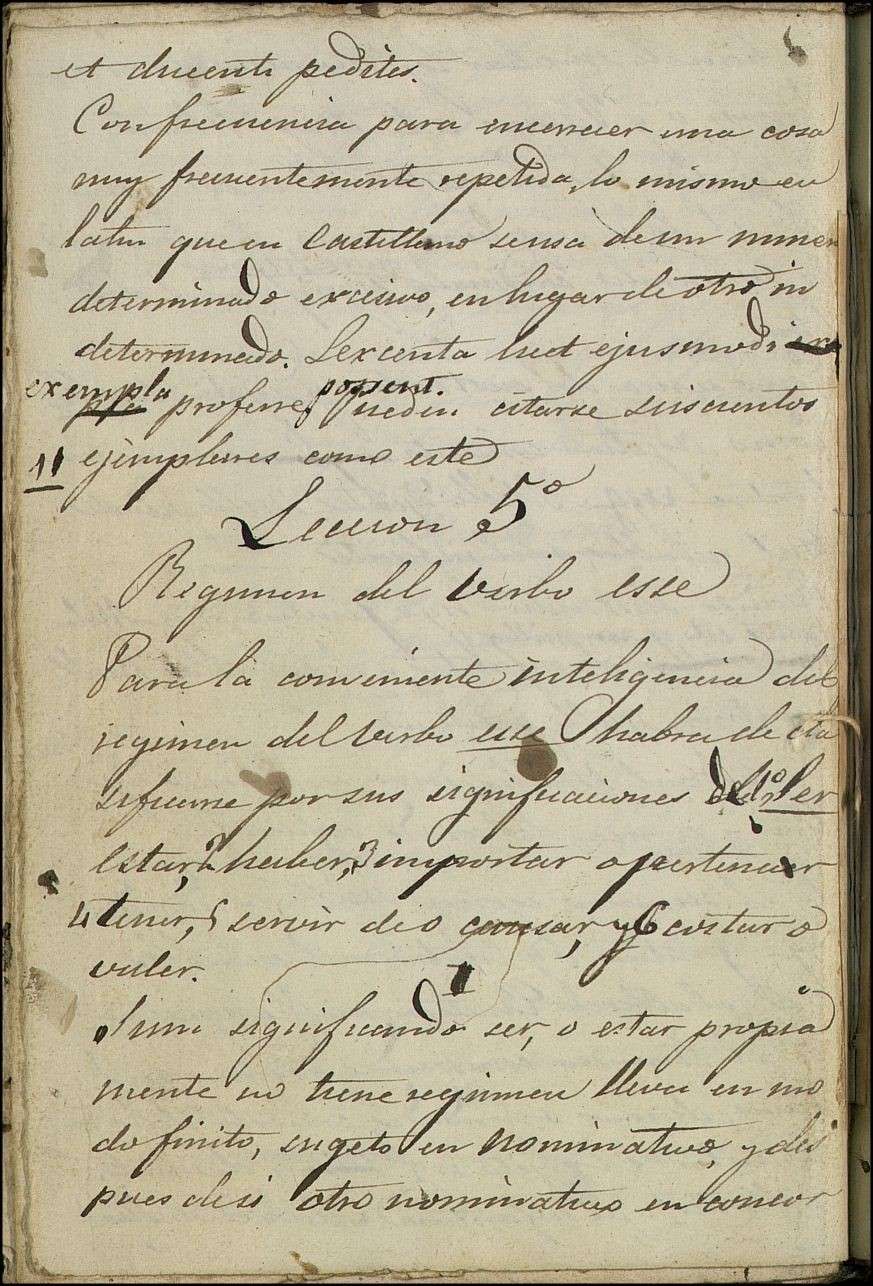 et ducenti pedites.
Con frecuencia para encarecer una cosa
muy frecuentemente repetida, lo mismo en
latin que en Castellano se usa de un numero
determinado excesivo, en lugar de otro in
determinado. Sexcenta licet ejusmodi
exempla proferre, possent.
pueden citarse seiscientos
11 ejemplares como este
Leccion 5º
Regimen del verbo esse
Para la conveniente inteligencia del
regimen del verbo esse habra de cla
sificarse por sus significaciones de 1º Ser
estar, 2 haber, 3 importar o pertenecer
4 tener, 5 servir de o causar, y 6 costar o
valer.
I
Sum significando ser, o estar propia
mente no tiene regimen lleva en mo
do finito, sugeto en nominativo, y des
pues de si otro nominativo en concor